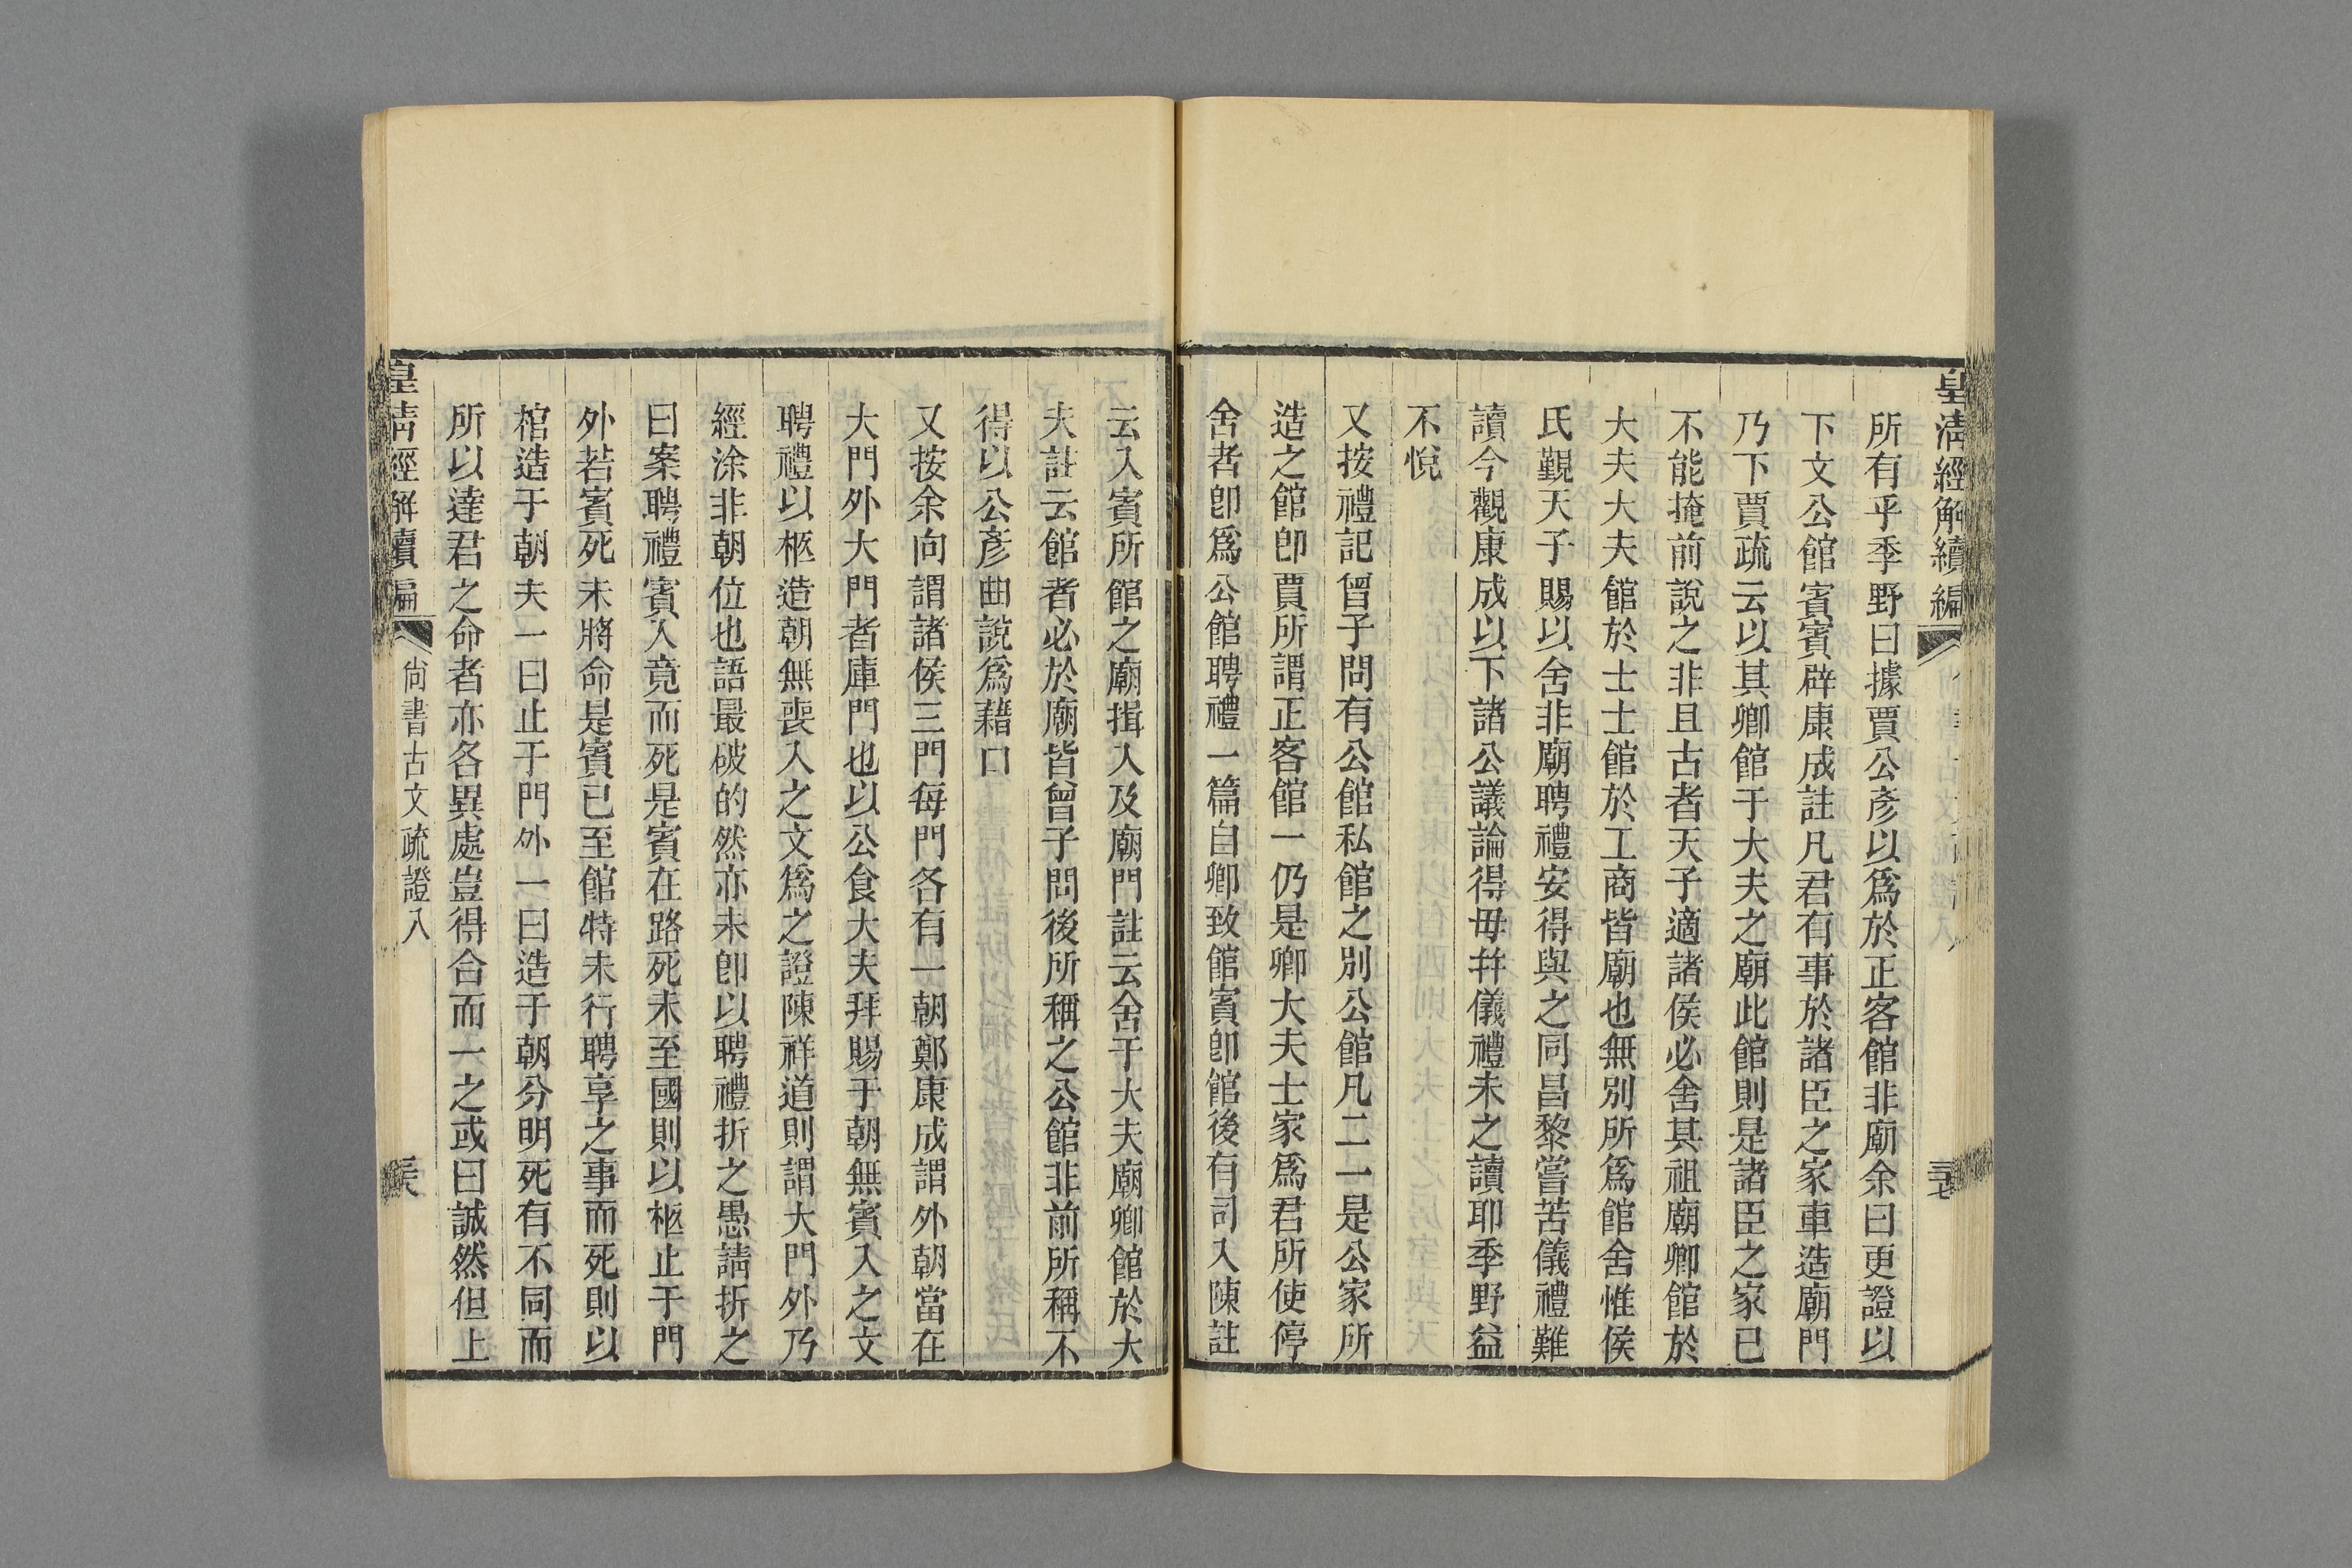 皇清經解續編
所有乎季野曰據賈公彥以爲於正客館非廟余曰更證以
下文公館賓賓辟康成註凡君有事於諸臣之家車造廟門
乃下賈疏云以其卿館于大夫之廟此館則是諸臣之家已
不能掩前說之非且古者天子適諸侯必舍其祖廟卿館於
大夫大夫館於士士館於工商皆廟也無別所爲館舍惟侯
氏覲天子賜以舍非廟聘禮安得與之同昌黎嘗苦儀禮難
讀今觀康成以下諸公議論得毋幷儀禮未之讀耶季野益
不悅
又按禮記曾子問有公館私館之別公館凡二一是公家所
造之館卽賈所謂正客館一仍是卿大夫士家爲君所使停
舍者卽爲公館聘禮一篇自卿致館賓卽館後有司入陳註
云入賓所館之廟揖入及廟門註云舍于大夫廟卿館於大
夫註云館者必於廟皆曾子問後所稱之公館非前所稱不
得以公彥曲說爲藉口
又按余向謂諸侯三門每門各有一朝鄭康成謂外朝當在
大門外大門者庫門也以公食大夫拜賜于朝無賓入之文
聘禮以柩造朝無喪入之文爲之證陳祥道則謂大門外乃
經涂非朝位也語最破的然亦未卽以聘禮折之愚請折之
曰案聘禮賓入竟而死是賓在路死未至國則以柩止于門
外若賓死未將命是賓已至館特未行聘享之事而死則以
棺造于朝夫一曰止于門外一曰造于朝分明死有不同而
所以達君之命者亦各異處豈得合而一之或曰誠然但上
皇清經解續編
尙書古文疏證八